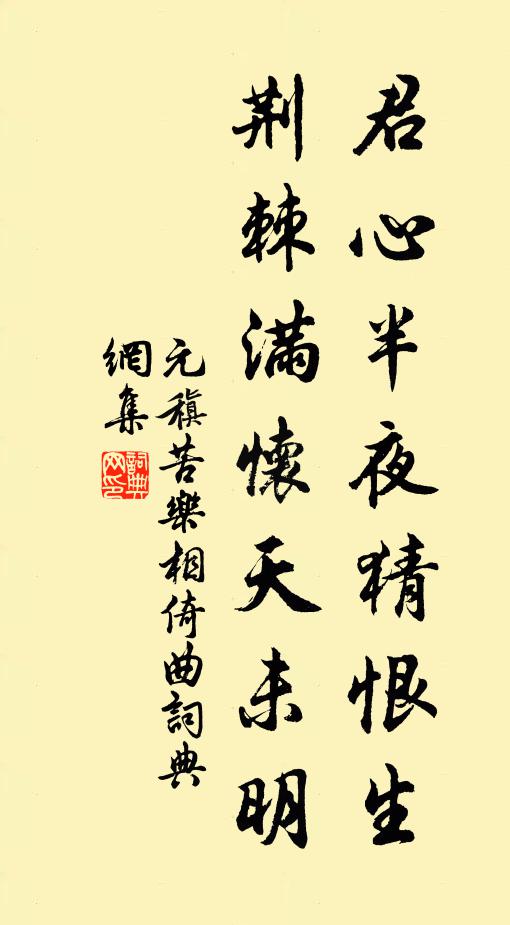 君心半夜猜恨生
荆棘滿懷天未明
元稹苦樂相倚曲詞典
網集
詞典
网印